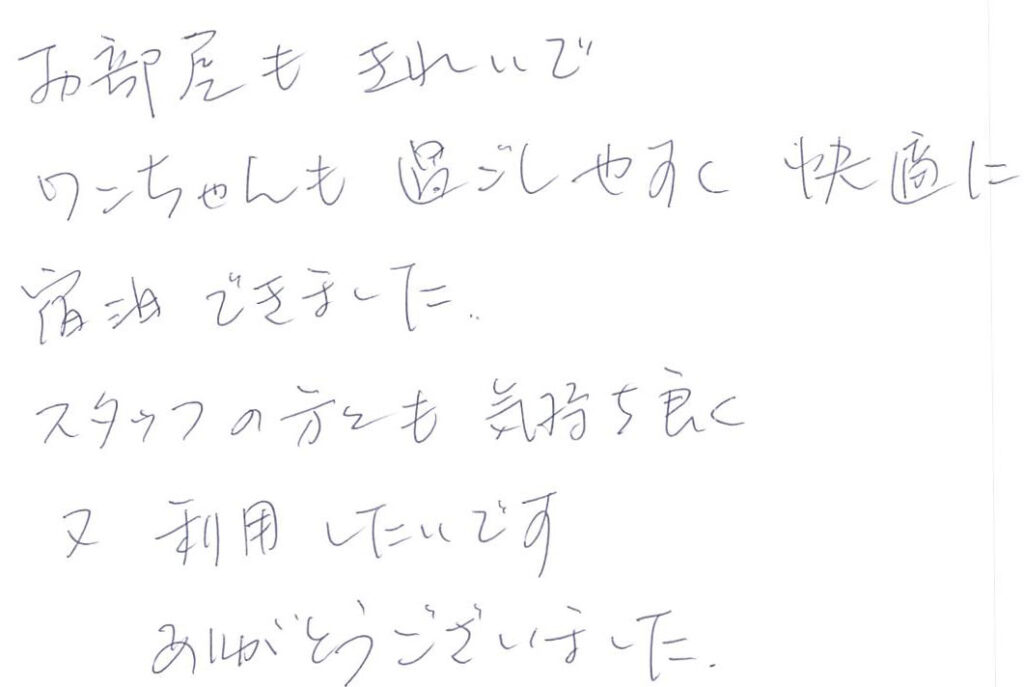 お部屋も きれいで
ワンちゃんも 過ごしやすく 快適に
宿泊 できました。
スタッフの方々も 気持ち良く
又 利用 したいです
ありがとうございました。